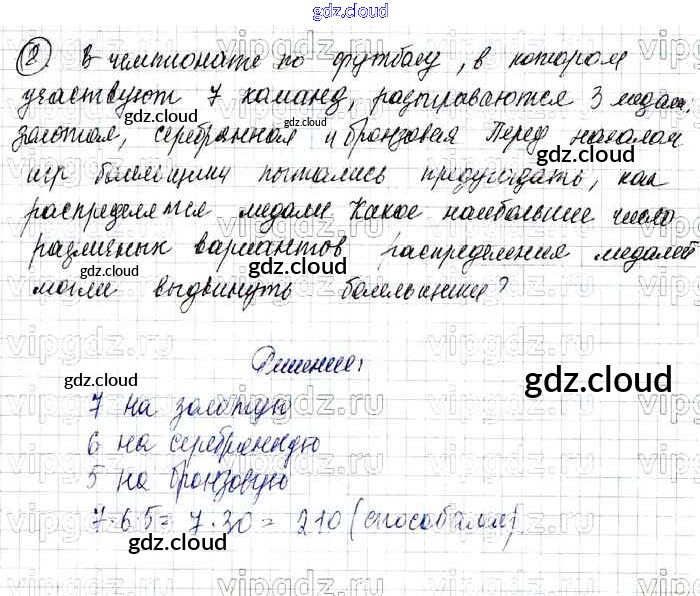 gdz.cloud
② В чемпионате по футболу, в котором
участвуют 7 команд, разыгрываются 3 медали,
золотая, серебрянная и бронзовая Перед началом
игр болельщики пытались предугадать, как
распределятся медали. Какое наибольшее число
различных вариантов распределения медалей
могли выдвинуть болельщики?
Решение:
7 на золотую
6 на серебрянную
5 на бронзовую
7·6·5= 7·30 = 210 (способами)
gdz.cloud